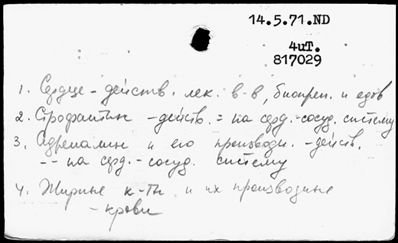 14.5.71.ND
4иТ.
817029
1. Сердце - действ. лек. в-в, биопреп. и ядов
2. Строфантин - действ. = на серд.-сосуд. систему
3. Адреналин и его производн. - действ.
-- на серд.-сосуд. систему
4. Жирные к-ты и их производные
- крови